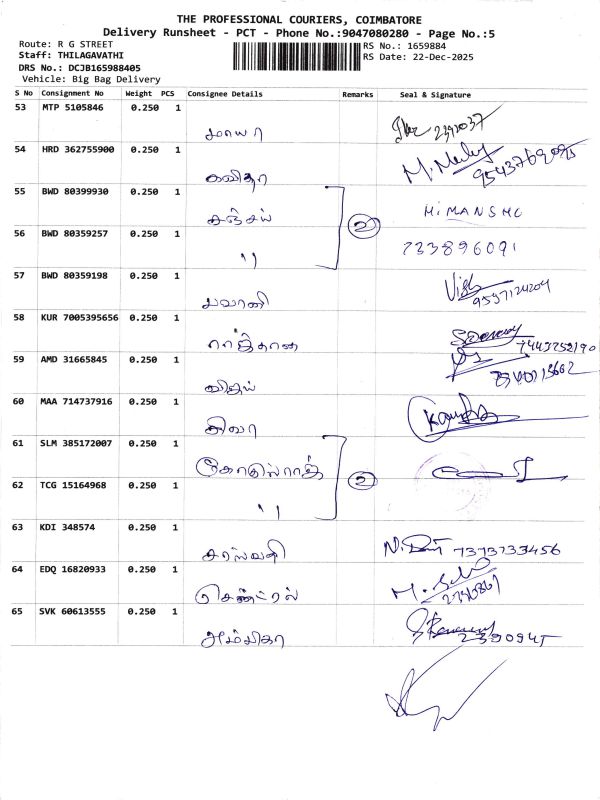 THE PROFESSIONAL COURIERS, COIMBATORE
Delivery Runsheet - PCT - Phone No.:9047080280 - Page No.:5
Route: R G STREET
Staff: THILAGAVATHI
DRS No.: DCJB165988405
Vehicle: Big Bag Delivery
RS No.: 1659884
RS Date: 22-Dec-2025
S No Consignment No Weight PCS Consignee Details Remarks Seal & Signature
53 MTP 5105846 0.250 1
மாயா 2392037
54 HRD 362755900 0.250 1
கவிதா
55 BWD 80399930 0.250 1
சஞ்சய் 2 HIMANSHU
56 BWD 80359257 0.250 1
" 733896091
57 BWD 80359198 0.250 1
பவானி
58 KUR 7005395656 0.250 1
59 AMD 31665845 0.250 1
விஜய்
60 MAA 714737916 0.250 1
சிவா
61 SLM 385172007 0.250 1
கோகுல்ராஜ் 2
62 TCG 15164968 0.250 1
"
63 KDI 348574 0.250 1
சரஸ்வதி 7373733456
64 EDQ 16820933 0.250 1
சென்ட்ரல்
65 SVK 60613555 0.250 1
அம்பிகா